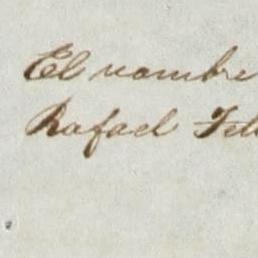 El nombre
Rafael Feli